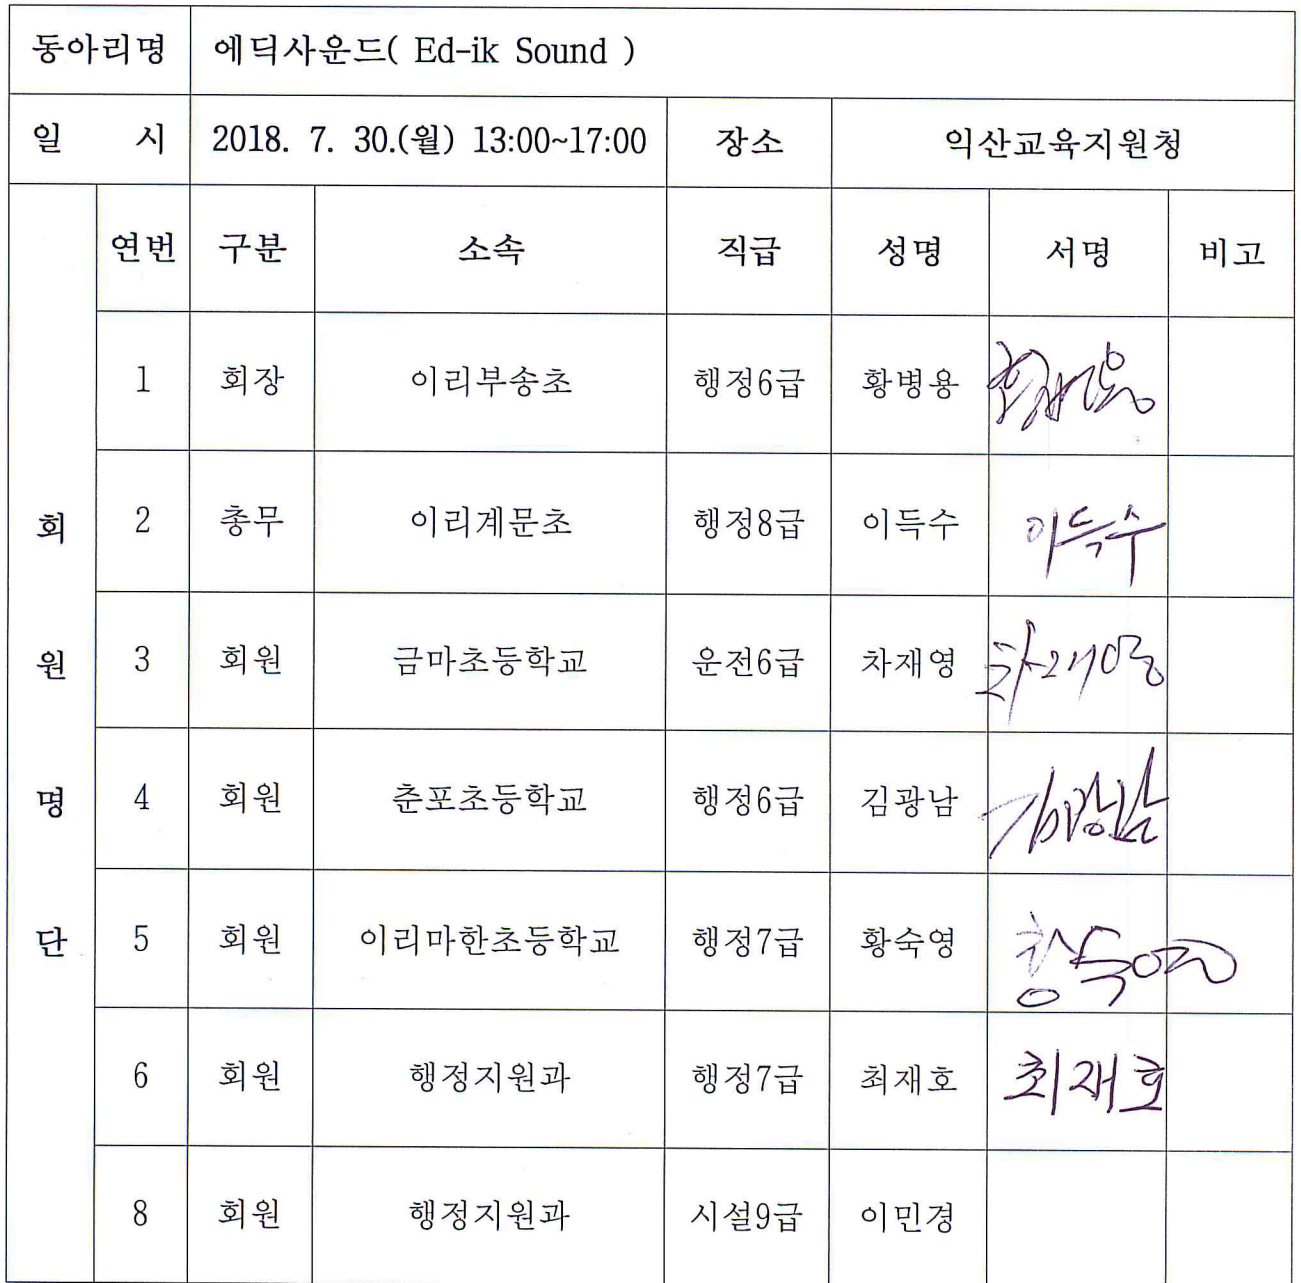 동아리명 에딕사운드( Ed-ik Sound )
일 시 2018. 7. 30.(월) 13:00~17:00 장소 익산교육지원청
회원명단
연번 구분 소속 직급 성명 서명 비고
1 회장 이리부송초 행정6급 황병용 황병용
2 총무 이리계문초 행정8급 이득수 이득수
3 회원 금마초등학교 운전6급 차재영 차재영
4 회원 춘포초등학교 행정6급 김광남 김광남
5 회원 이리마한초등학교 행정7급 황숙영 황숙영
6 회원 행정지원과 행정7급 최재호 최재호
8 회원 행정지원과 시설9급 이민경